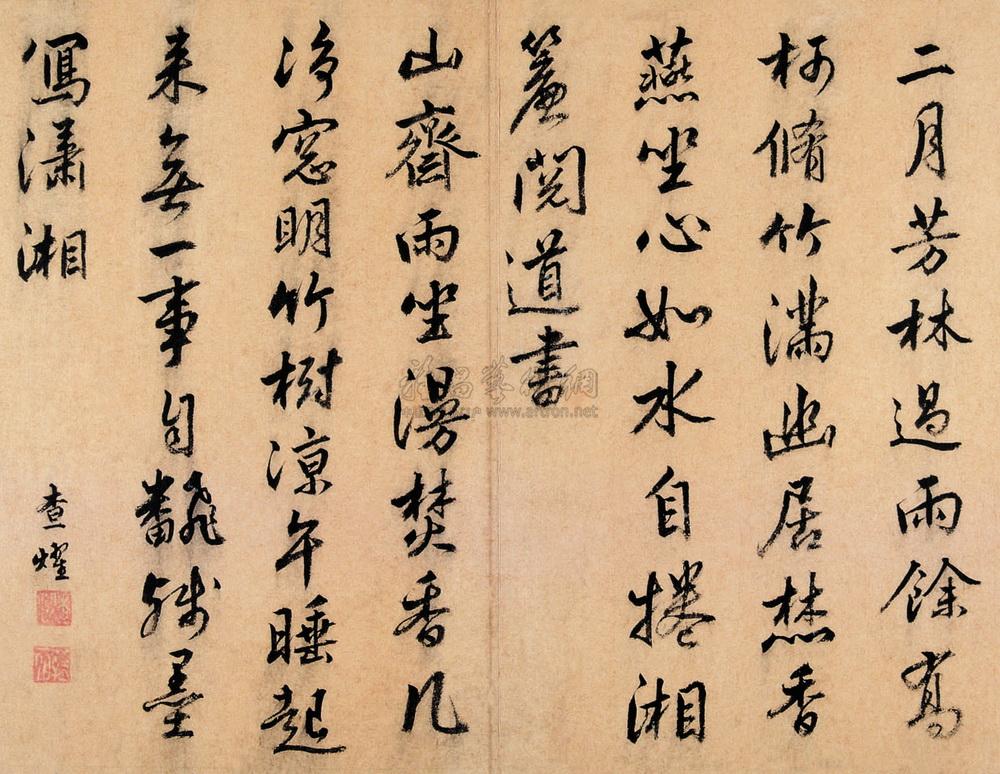 二月芳林過雨餘高
柯脩竹滿幽居焚香
燕坐心如水自捲湘
簾閱道書
山齋雨坐漫焚香几
淨窓明竹樹涼午睡起
来無一事自翻殘墨
寫瀟湘
查燿
雅昌藝術網
www.artron.net